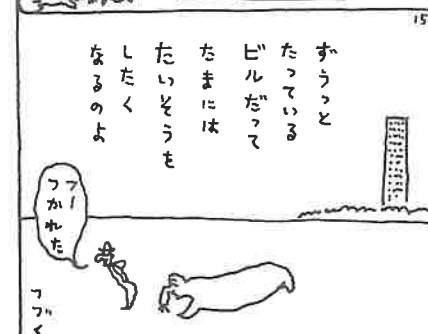 15
ずうっと
たっている
ビルだって
たまには
たいそうを
したく
なるのよ
フー
つかれた
つづく